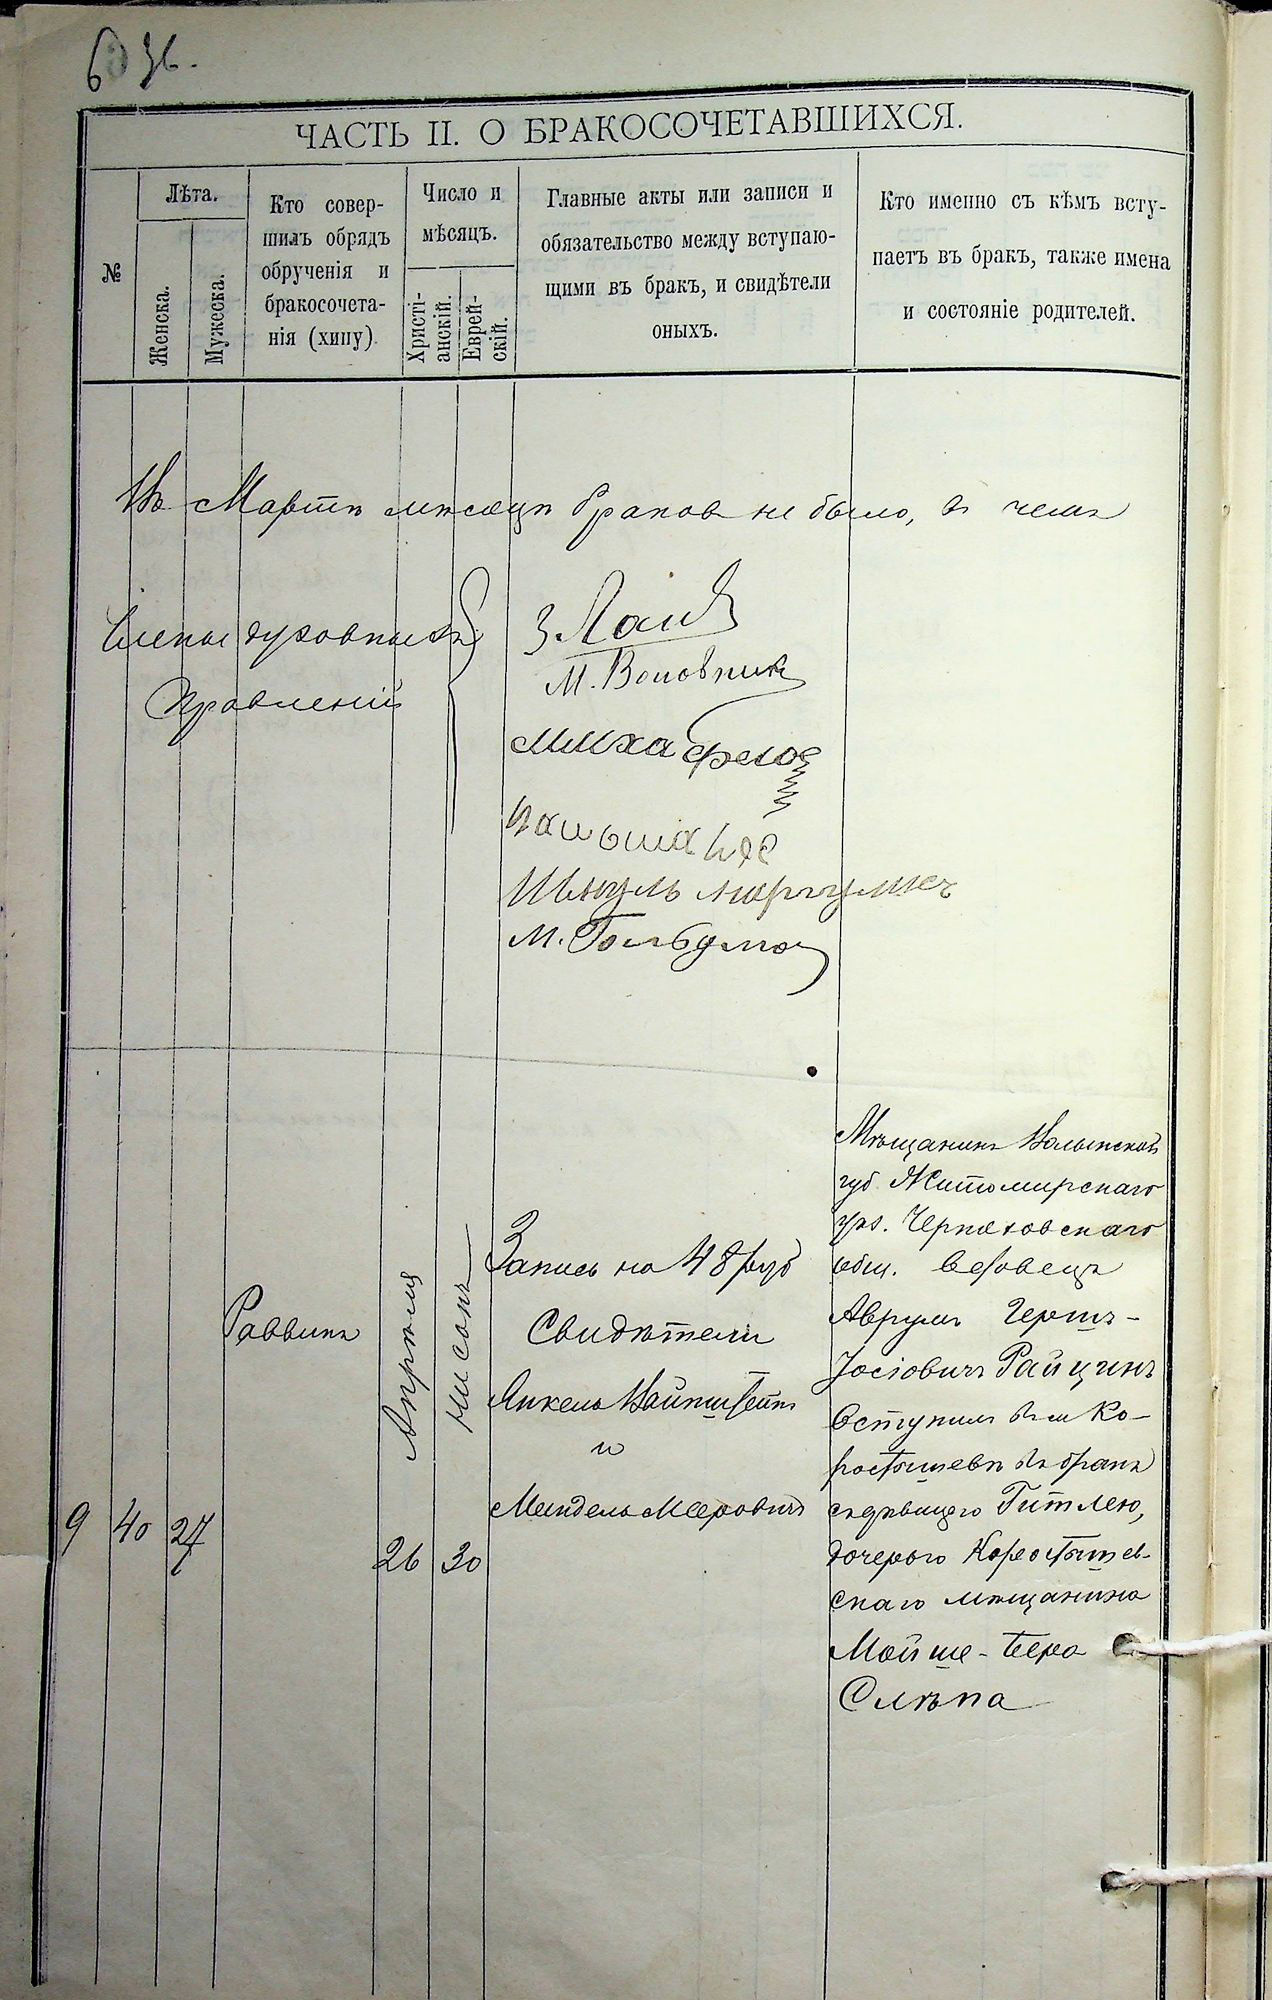 6 36.
ЧАСТЬ II. О БРАКОСОЧЕТАВШИХСЯ.
№
Лѣта.
Женска.
Мужеска.
Кто совер-
шилъ обрядъ
обрученія и
бракосочета-
нія (хипу).
Число и
мѣсяцъ.
Христі-
анскій.
Еврей-
скій.
Главные акты или записи и
обязательство между вступаю-
щими въ бракъ, и свидѣтели
оныхъ.
Кто именно съ кѣмъ всту-
паетъ въ бракъ, также имена
и состояніе родителей.
Въ Мартѣ мѣсяцѣ браковъ не было, въ чемъ
Члены духовныхъ
Правленій
М. Воловник
Шмуль
9
40
27
Раввинъ
Апрѣля
26
Нисонъ
30
Запись на 48 руб
Свидѣтели
Янкель Вайнштейнъ
и
Мендель Мееровичъ
Мѣщанинъ Волынской
губ. Житомирскаго
уѣз. Черняховскаго
общ. вдовецъ
Аврумъ Гершъ-
Іосіовичъ Райцинъ
вступилъ въ м Ко-
ростышевѣ въ бракъ
съ дѣвицею Гитлею,
дочерью Коростышев-
скаго мѣщанина
Мойше-Бера
Слѣпа